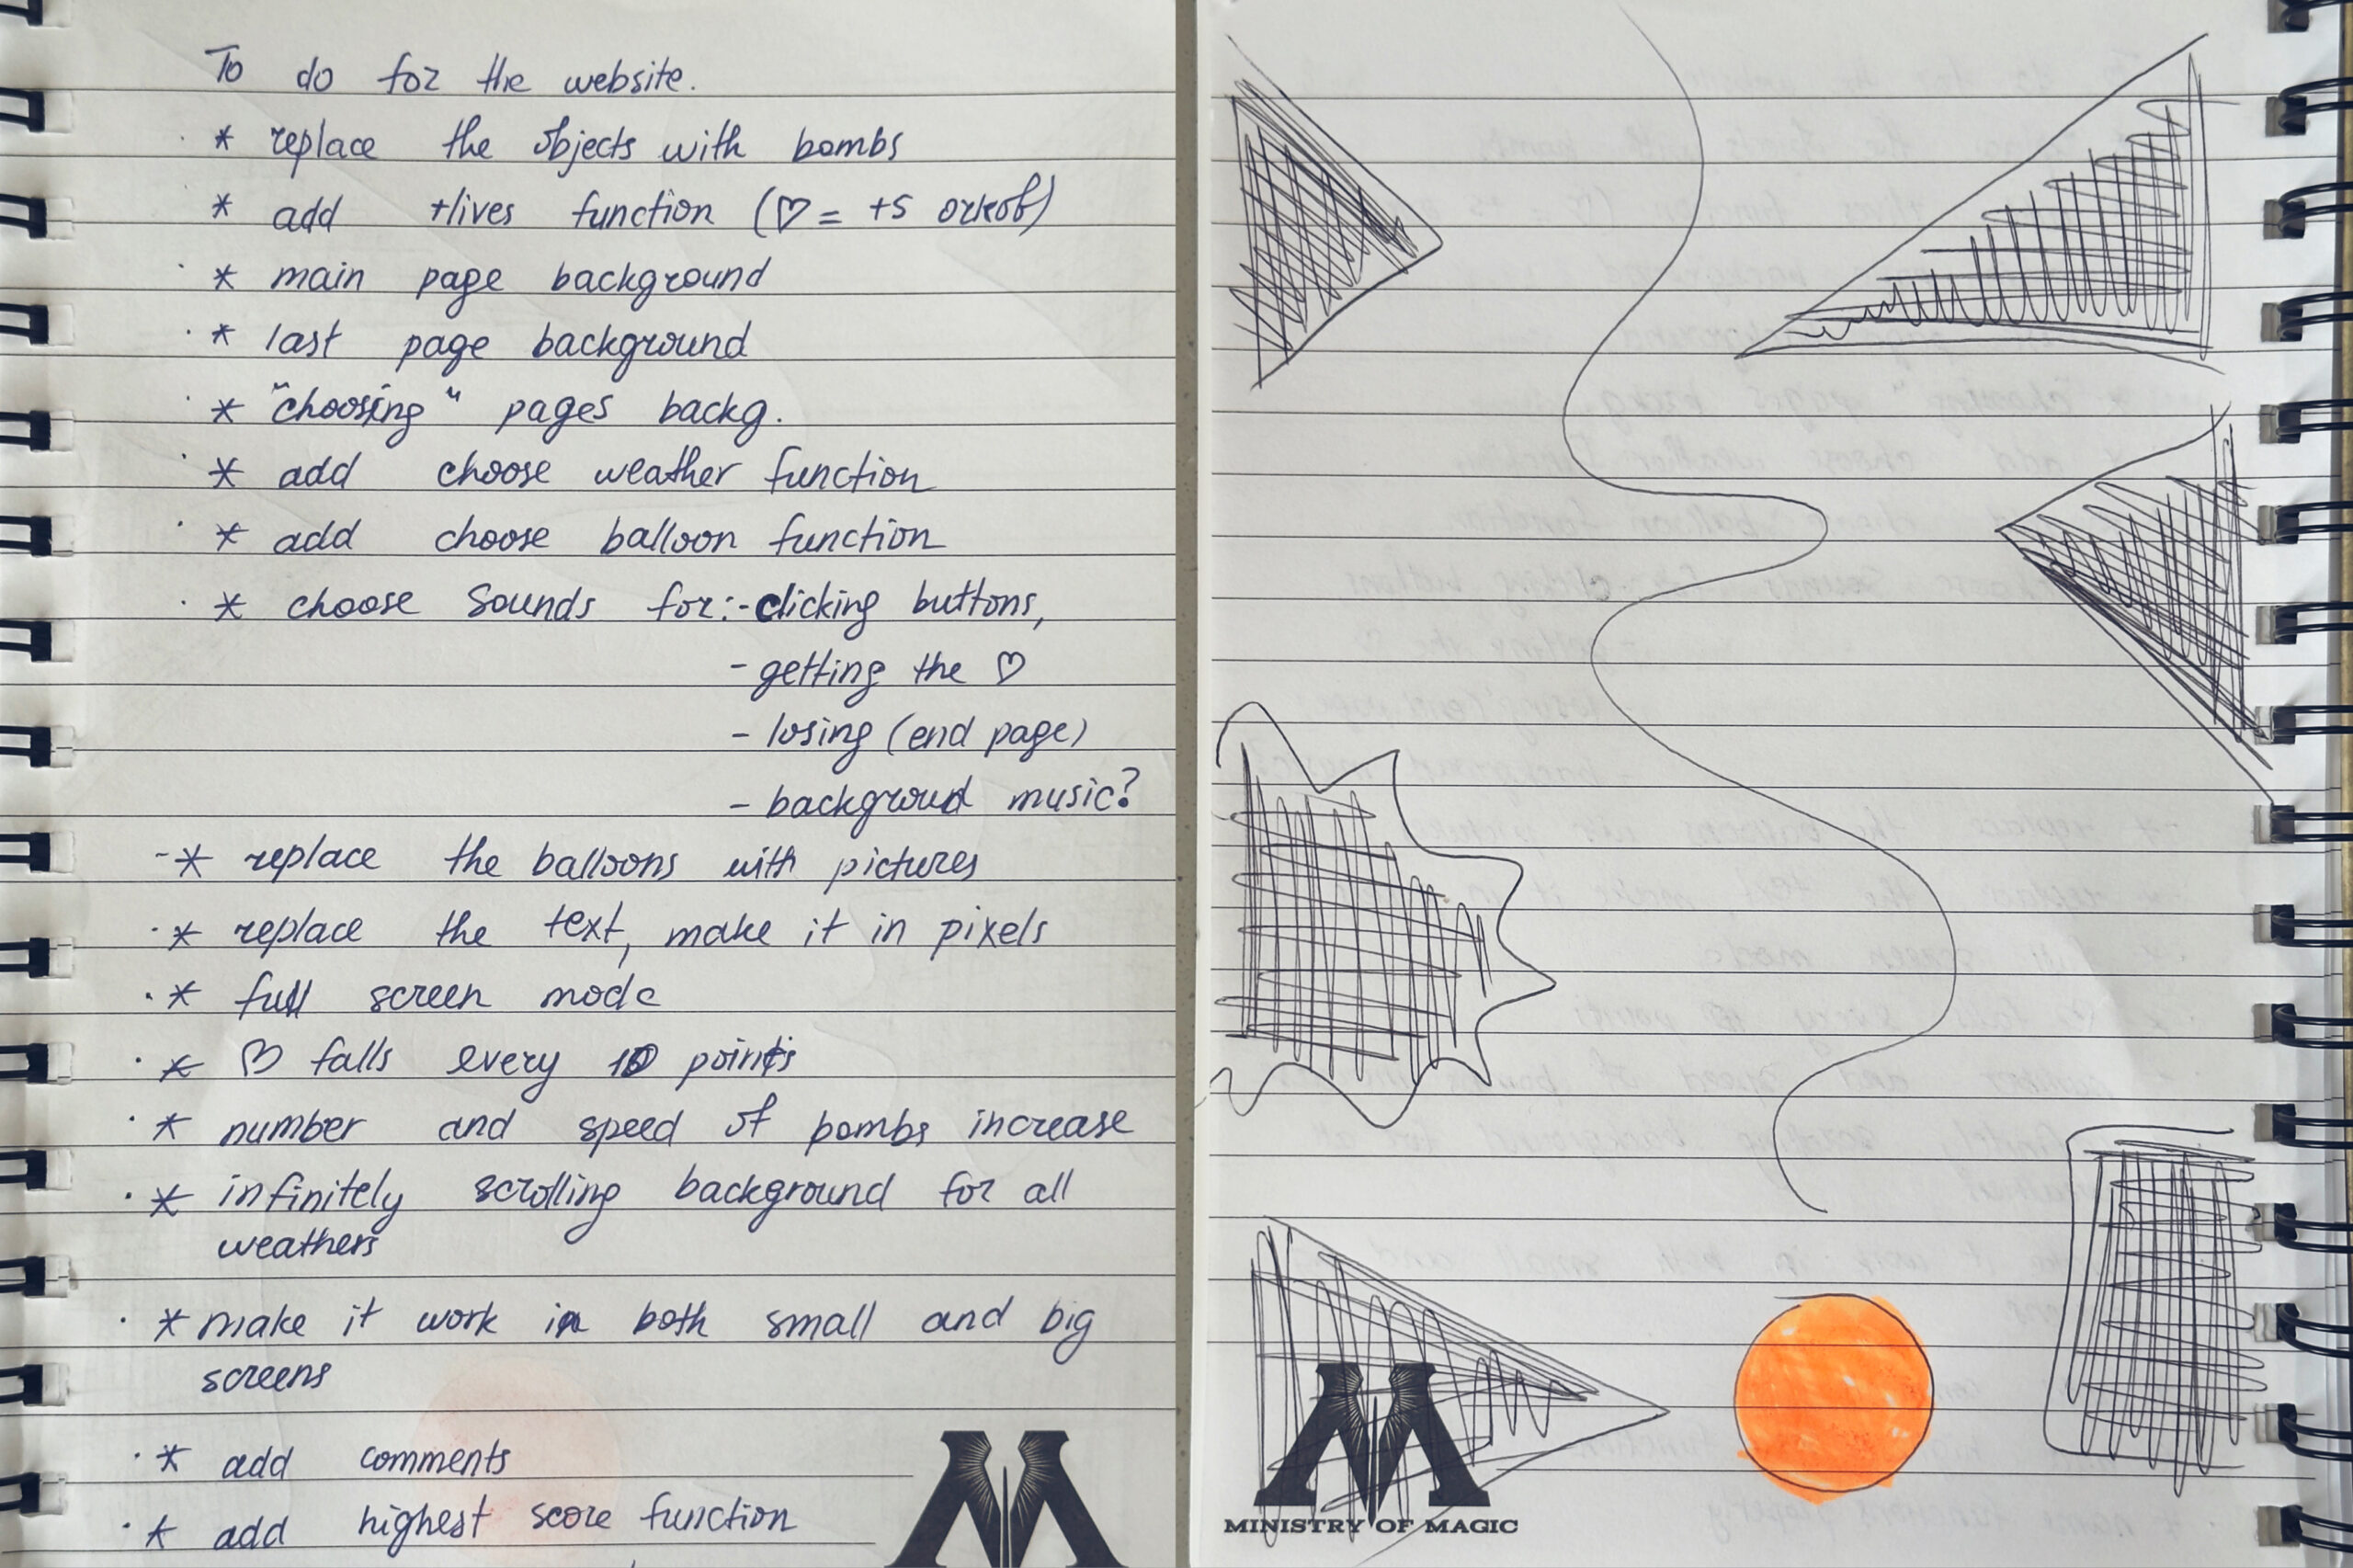 To do for the website.
* replace the objects with bombs
* add +lives function (♡ = +5 очков)
* main page background
* last page background
* "choosing" pages backg.
* add choose weather function
* add choose balloon function
* choose sounds for: - clicking buttons,
- getting the ♡
- losing (end page)
- backgroud music?
-* replace the balloons with pictures
* replace the text, make it in pixels
* full screen mode
* ♡ falls every 10 points
* number and speed of bombs increase
* infinitely scrolling background for all
weathers
* make it work in both small and big
screens
* add comments
* add highest score function
MINISTRY OF MAGIC